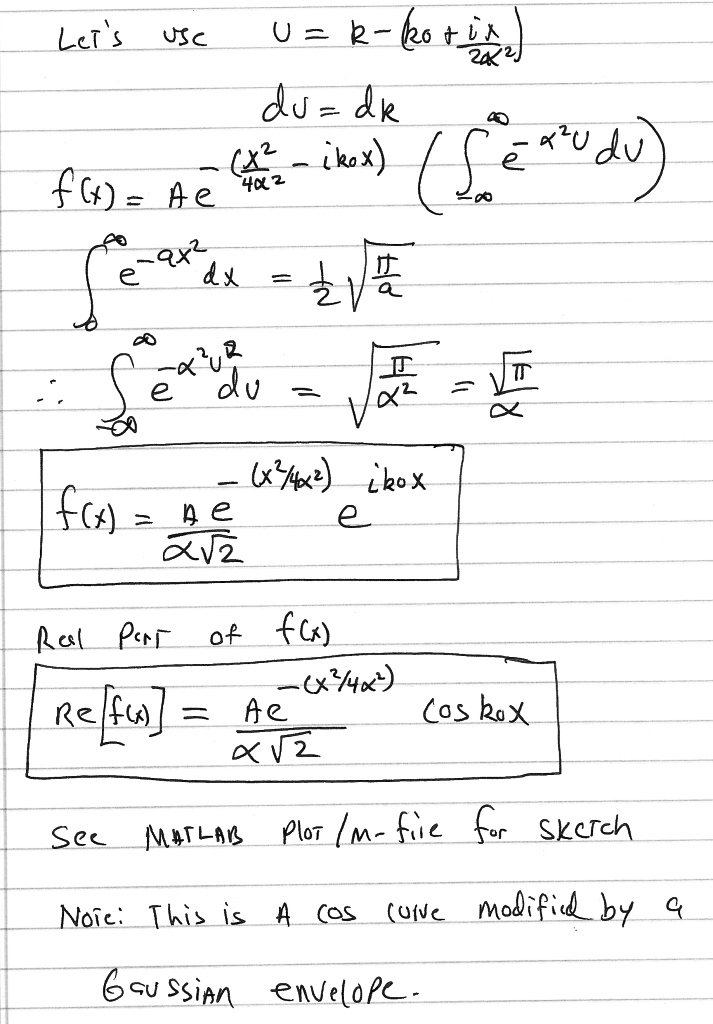 Let's use U = k - (ko + ix/2α²)
du = dk
f(x) = A e^-(x²/4α² - ikox) (∫_-∞^∞ e^-α²U du)
∫_0^∞ e^-ax² dx = 1/2 √(π/a)
∴ ∫_-∞^∞ e^-α²u² du = √(π/α²) = √π/α
f(x) = A e^-(x²/4α²)/α√2 e^ikox
Real Part of f(x)
Re[f(x)] = A e^-(x²/4α²)/α√2 cos kox
See MATLAB PLOT/m-file for sketch
Note: This is A cos curve modified by a
Gaussian envelope.